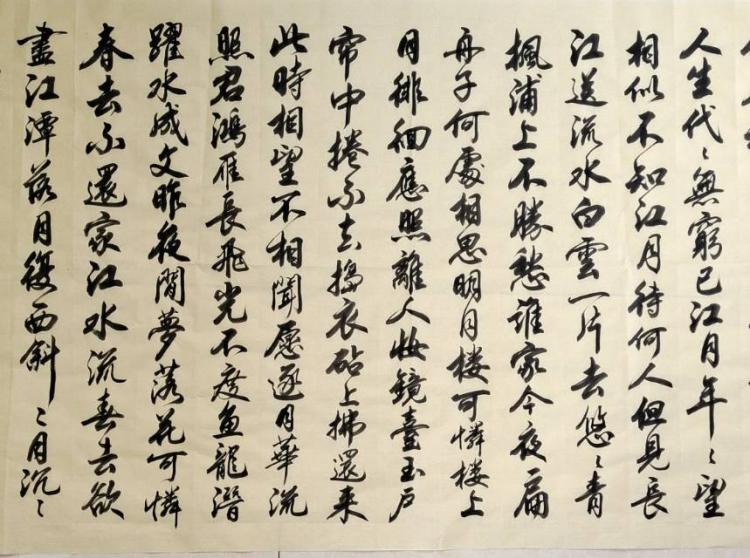 人生代〻無窮已江月年〻望
相似不知江月待何人但見長
江送流水白雲一片去悠〻青
楓浦上不勝愁誰家今夜扁
舟子何處相思明月楼可憐楼上
月徘徊應照離人妝鏡臺玉戶
帘中捲不去搗衣砧上拂還来
此時相望不相聞愿逐月華流
照君鴻雁長飛光不度魚龍潛
躍水成文昨夜閒夢落花可憐
春去不還家江水流春去欲
盡江潭落月復西斜〻月沉〻